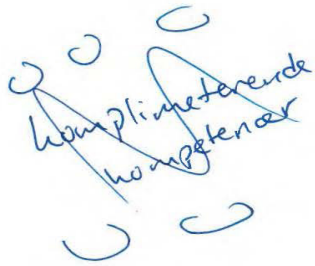 komplimeterende
kompetencer